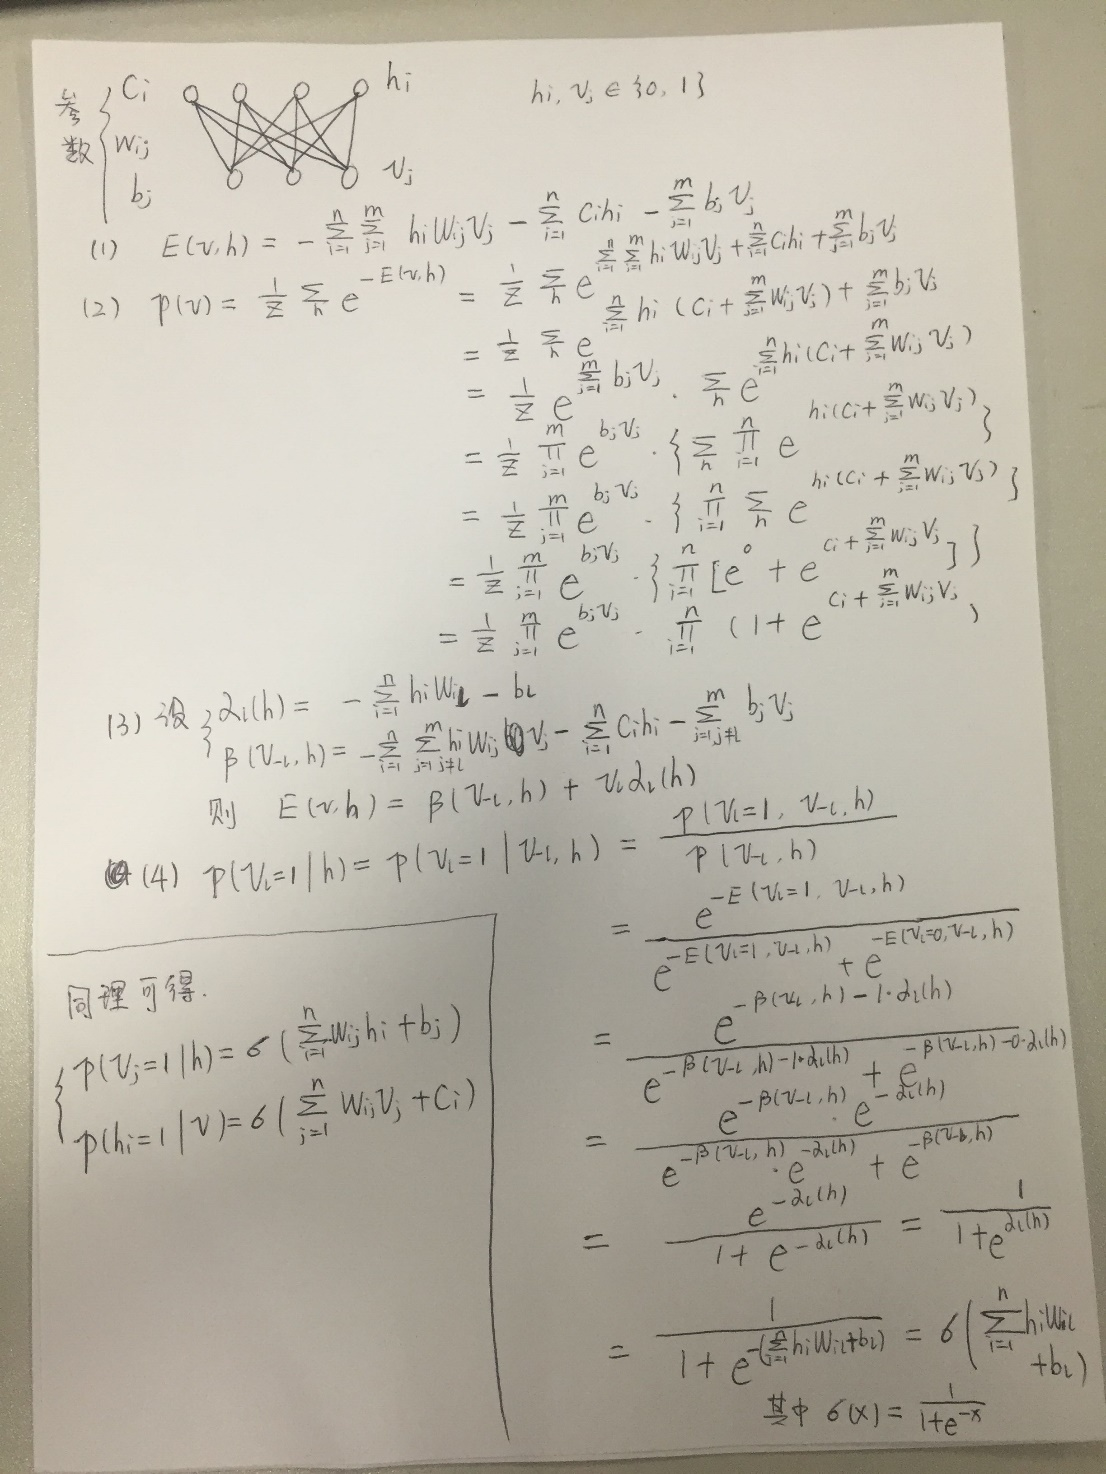 参数 { c_i w_ij b_j
h_i
v_j
h_i, v_j ∈ {0, 1}
(1) E(v,h) = -∑_{i=1}^{n} ∑_{j=1}^{m} h_i w_ij v_j - ∑_{i=1}^{n} c_i h_i - ∑_{j=1}^{m} b_j v_j
(2) p(v) = 1/Z ∑_h e^{-E(v,h)} = 1/Z ∑_h e^{∑_{i=1}^{n} ∑_{j=1}^{m} h_i w_ij v_j + ∑_{i=1}^{n} c_i h_i + ∑_{j=1}^{m} b_j v_j}
= 1/Z ∑_h e^{∑_{i=1}^{n} h_i (c_i + ∑_{j=1}^{m} w_ij v_j) + ∑_{j=1}^{m} b_j v_j}
= 1/Z e^{∑_{j=1}^{m} b_j v_j} · ∑_h e^{∑_{i=1}^{n} h_i (c_i + ∑_{j=1}^{m} w_ij v_j)}
= 1/Z ∏_{j=1}^{m} e^{b_j v_j} · {∑_h ∏_{i=1}^{n} e^{h_i (c_i + ∑_{j=1}^{m} w_ij v_j)}}
= 1/Z ∏_{j=1}^{m} e^{b_j v_j} · {∏_{i=1}^{n} ∑_h e^{h_i (c_i + ∑_{j=1}^{m} w_ij v_j)}}
= 1/Z ∏_{j=1}^{m} e^{b_j v_j} · {∏_{i=1}^{n} [e^0 + e^{c_i + ∑_{j=1}^{m} w_ij v_j}]}
= 1/Z ∏_{j=1}^{m} e^{b_j v_j} · ∏_{i=1}^{n} (1 + e^{c_i + ∑_{j=1}^{m} w_ij v_j})
(3) 设 { α_l(h) = -∑_{i=1}^{n} h_i w_il - b_l
β(v_-l, h) = -∑_{i=1}^{n} ∑_{j=1 j≠l}^{m} h_i w_ij v_j - ∑_{i=1}^{n} c_i h_i - ∑_{j=1 j≠l}^{m} b_j v_j
则 E(v,h) = β(v_-l, h) + v_l α_l(h)
(4) p(v_l=1|h) = p(v_l=1|v_-l, h) = p(v_l=1, v_-l, h) / p(v_-l, h)
= e^{-E(v_l=1, v_-l, h)} / (e^{-E(v_l=1, v_-l, h)} + e^{-E(v_l=0, v_-l, h)})
= e^{-β(v_-l, h) - 1·α_l(h)} / (e^{-β(v_-l, h) - 1·α_l(h)} + e^{-β(v_-l, h) - 0·α_l(h)})
= e^{-β(v_-l, h)} · e^{-α_l(h)} / (e^{-β(v_-l, h)} · e^{-α_l(h)} + e^{-β(v_-l, h)})
= e^{-α_l(h)} / (1 + e^{-α_l(h)}) = 1 / (1 + e^{α_l(h)})
= 1 / (1 + e^{-(∑_{i=1}^{n} h_i w_il + b_l)}) = σ(∑_{i=1}^{n} h_i w_il + b_l)
其中 σ(x) = 1 / (1 + e^{-x})
同理可得.
{ p(v_j=1|h) = σ(∑_{i=1}^{n} w_ij h_i + b_j)
p(h_i=1|v) = σ(∑_{j=1}^{n} w_ij v_j + c_i)